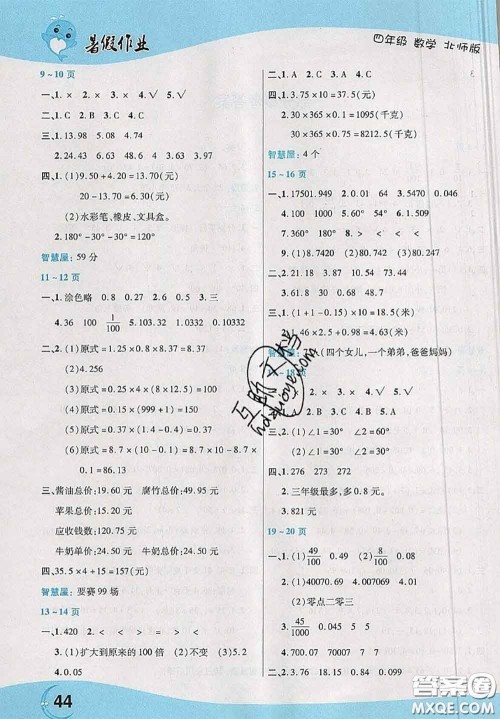 暑假作业
四年级 数学 北师版
9~10页
一、1.× 2.× 3.× 4.√ 5.√
二、1.C 2.B 3.C
三、1.13.98 5.34 5.08
2.4.23 9.49 4.51
四、1.(1)9.50+4.20=13.70(元)
20-13.70=6.30(元)
(2)水彩笔、橡皮、文具盒。
2.180°-30°-30°=120°
智慧屋:59分
11~12页
一、1.涂色略 0.8 0.27 2.0.6 3.三
4.36 100 1/100 5.100.32 10.032
6.< > < >
二、2.(1)原式=1.25×0.8×8.37=8.37
(2)4.256
(3)原式=0.25×4×(8×12.5)=100
(4)原式=0.15×(999+1)=150
(5)原式=0.37×(0.6+0.4)=0.37
(6)原式=8.7×(10-0.1)=8.7×10-8.7×
0.1=86.13
三、酱油总价:19.60元 腐竹总价:49.95元
苹果总价:15.60元
应收钱数:120.75元
牛奶单价:21.00元 牛奶总价:42.00元
四、35.5×4+15=157(元)
智慧屋:要赛99场
13~14页
一、1.420 2.< < > > < <
3.(1)扩大到原来的100倍 (2)不变
4.0.05
二、1.A 2.C 3.A 4.C
三、1.3.75×10=37.5(元)
2.30×365×0.1=1095(千克)
30×365×0.75=8212.5(千克)
智慧屋:4个
15~16页
一、1.17501.949 2.0.01 64 3.5470 0.046
4.0.09 100 5.0.35 2.07 6.4
7.360° 180° 8.180° 360°
9.(1)80.74 (2)80.740
二、1.× 2.√ 3.√ 4.× 5.√
三、1.(1+0.1-0.15)×90=85.5(米)
2.1.46×2.5+0.98=4.63(米)
(四个女儿,一个弟弟,爸爸妈妈)
18页
一、1.× 2.√ 3.× 4.× 5.√
二、1.B 2.C 3.B
三、2.(1)∠1=30° (2)∠1=60°
(3)∠1=30°
四、1.276 273 272
2.三年级最多,多0.8元。
19~20页
一、1.(1)49/100 0.49 (2)8/100 0.08
2.(1)40070.69 (2)40.0706
3.(2)零点二零三
4.45/1000 0.045 5.> < > =
二、1.C 2.A 3.A
44
互助文档
hdzhuoye.com
答案圈
MXQE.COM